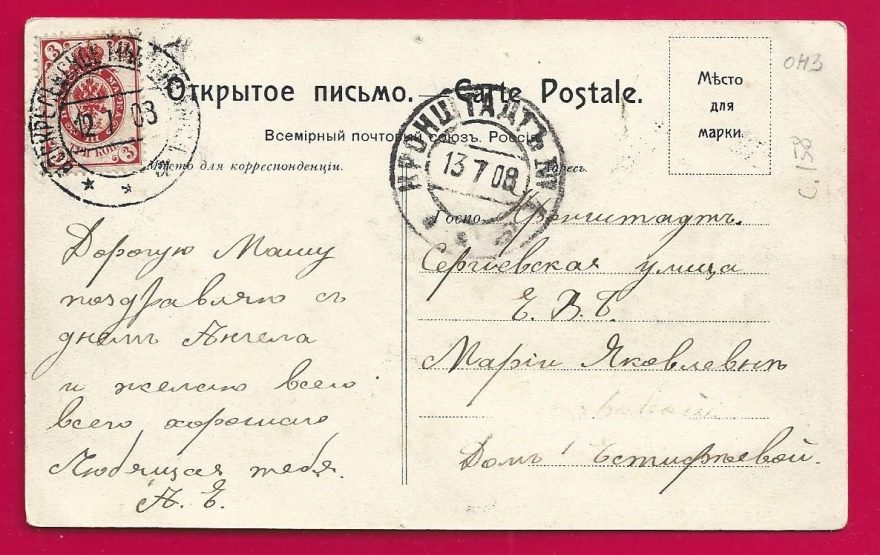 3
3
12 7 08
Открытое письмо. — Carte Postale.
Всемірный почтовый союзъ. Россія.
Мѣсто для корреспонденціи.
Адресъ.
КРОНШТАДТЪ
13 7 08
Мѣсто
для
марки.
043
С. 158
Дорогую Машу
поздравляю съ
днемъ Ангела
и желаю всего
всего хорошаго
Любящая тебя.
А. Е.
Госпо
Кронштадтъ.
Сергіевская улица
Е. В. Б.
Маріи Яковлевнѣ
Домъ Евстифѣевой.